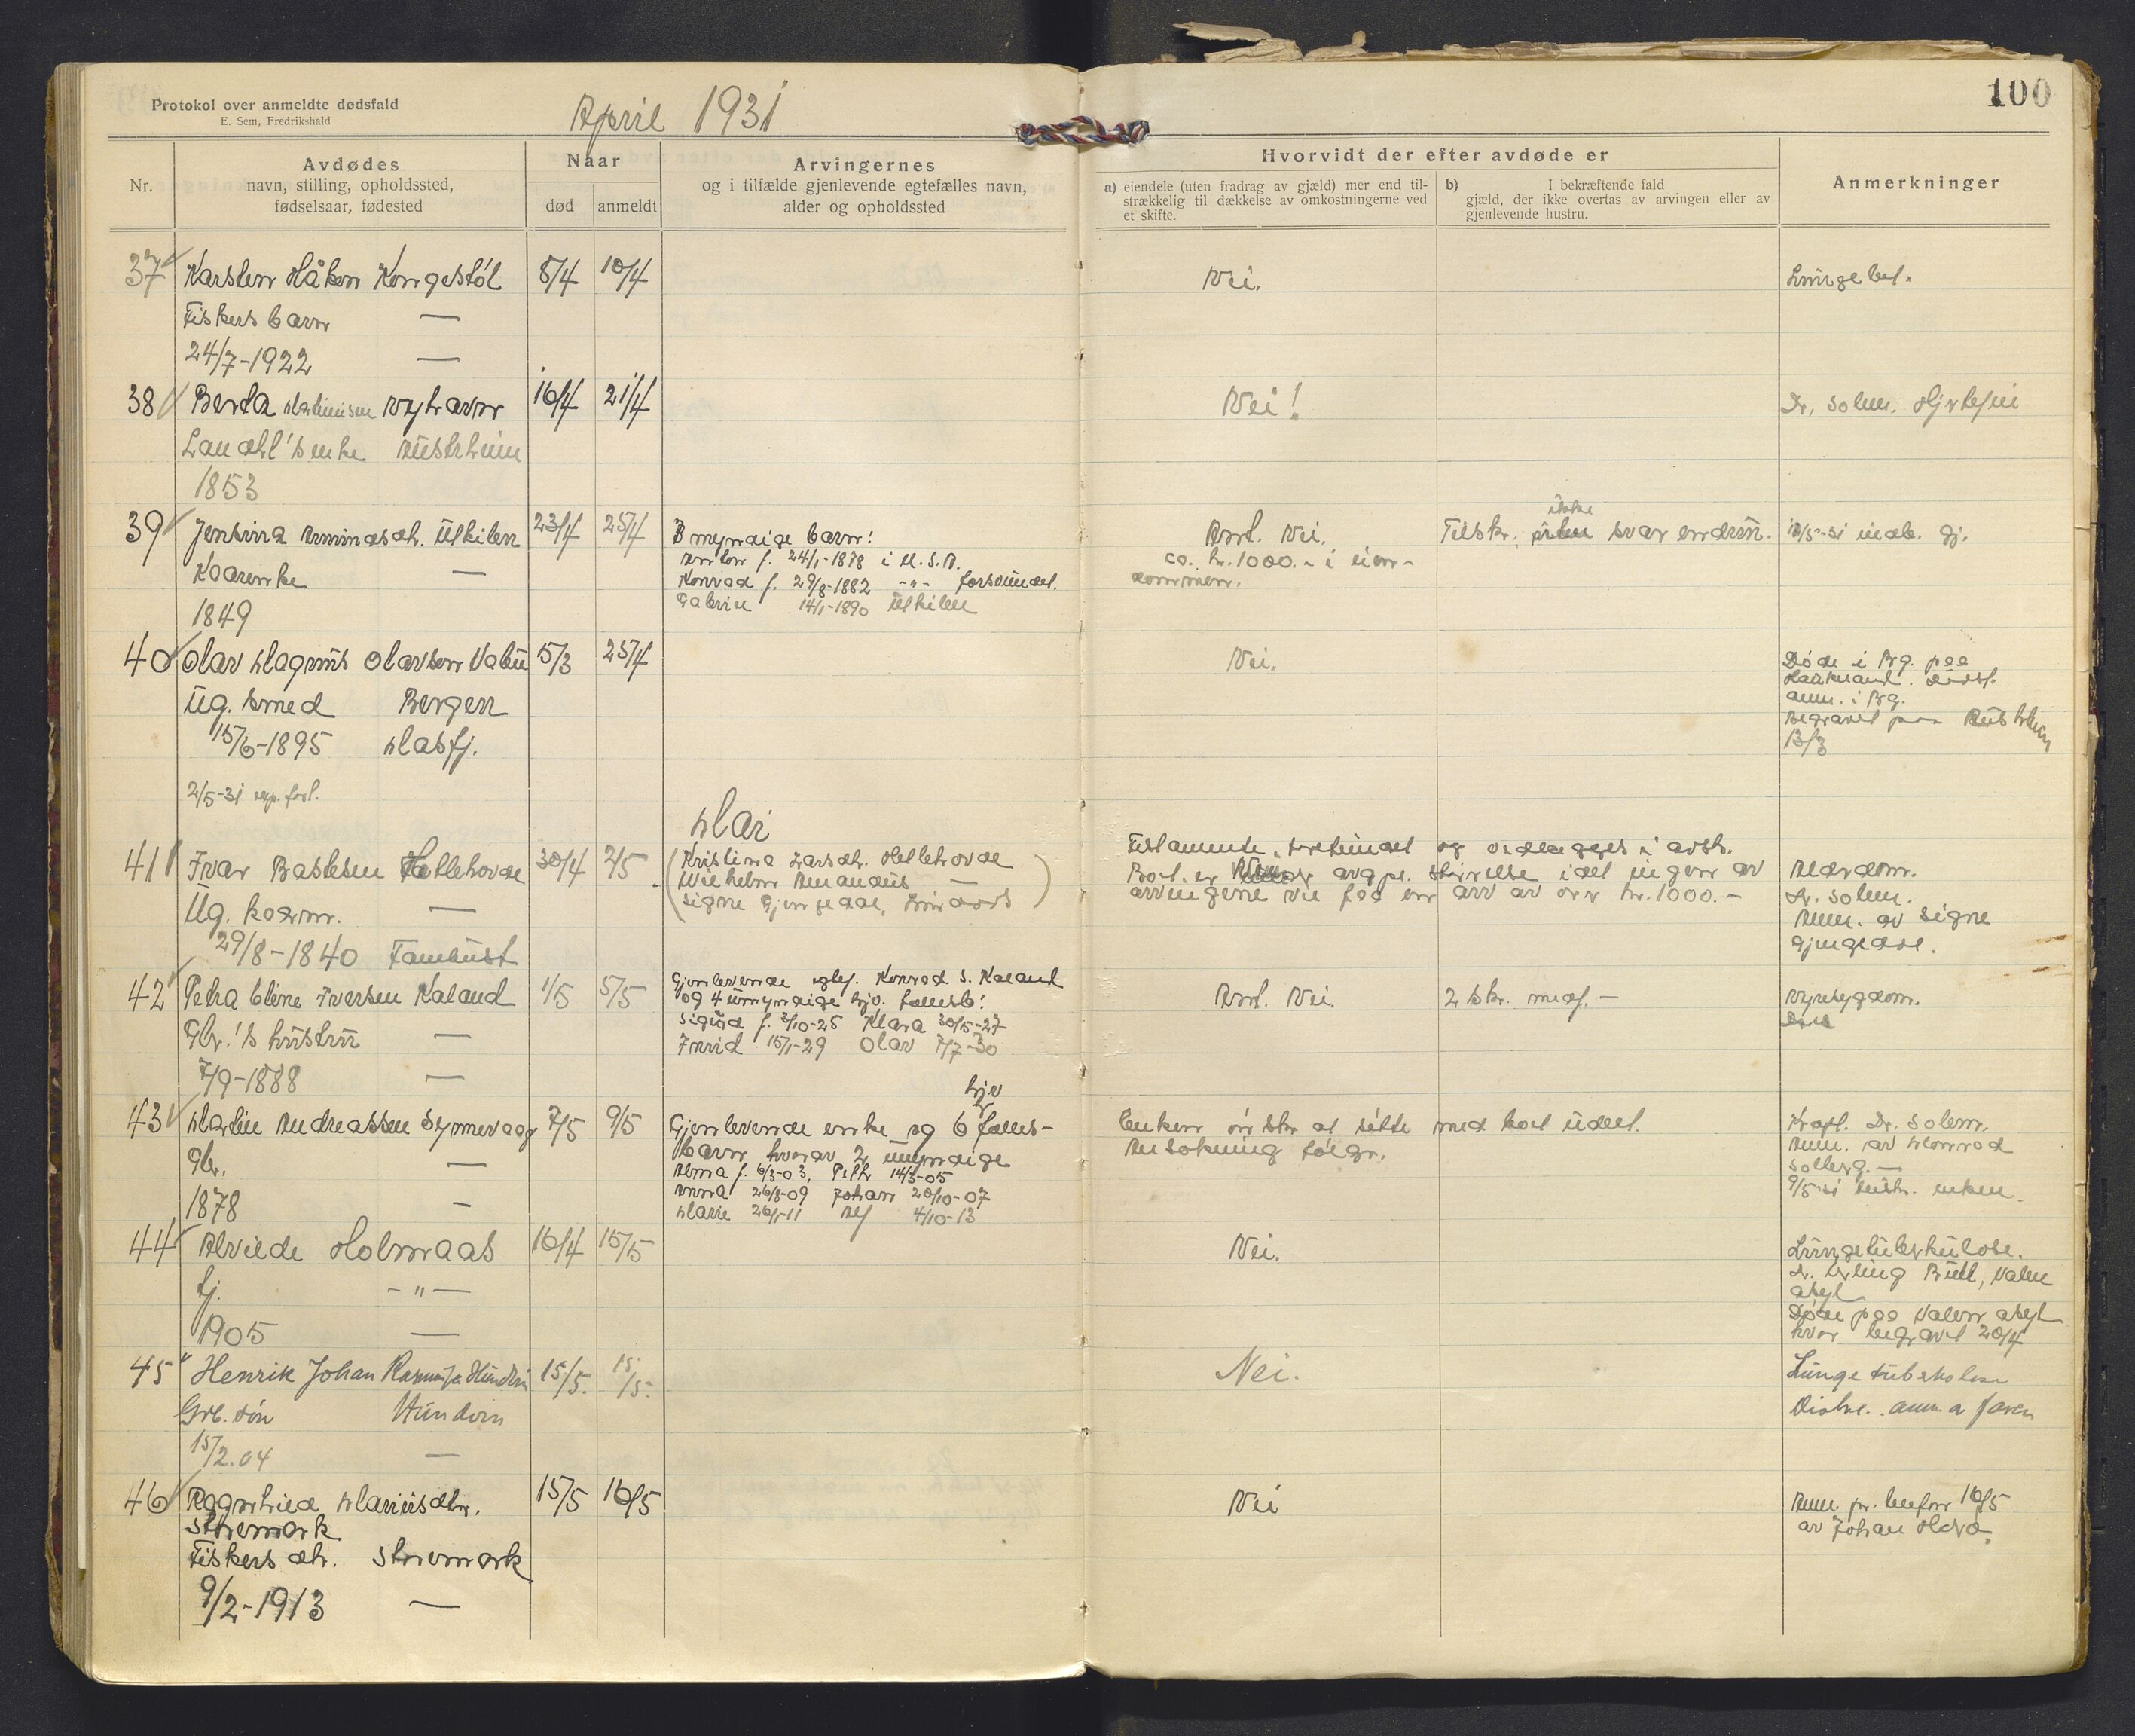 Protokol over anmeldte dødsfald
E. Sem, Fredrikshald
April 1931
100
Nr.
Avdødes
navn, stilling, opholdssted,
fødselsaar, fødested
Naar
død
anmeldt
Arvingernes
og i tilfælde gjenlevende egtefælles navn,
alder og opholdssted
Hvorvidt der efter avdøde er
a) eiendele (uten fradrag av gjæld) mer end til-
strækkelig til dækkelse av omkostningerne ved
et skifte.
b) I bekræftende fald
gjæld, der ikke overtas av arvingen eller av
gjenlevende hustru.
Anmerkninger
37 Karsten Håkon Kongestøl 8/4 10/4 Nei. Lungebet.
Fiskers barn —
24/7-1922 —
38 Berta Martinusen Nyhavn 16/4 21/4 Nei! Dr. Solem. Hjertefei
Landhl's enke Austrheim
1853
39 Jensina Amundsdt. Utkilen 23/4 25/4 3 myndige barn: Ant. Nei. Tilskr. ikke svar endnu. 12/5-31 indb. gj.
Kaarenke —
Anton f. 24/1-1878 i U.S.A. ca. kr. 1000.- i eien-
Konrad f. 29/8-1882 -"- forsvundet. dommen.
1849
Galvin 14/1-1890 Utkilen
40 Olav Magnus Olavsen Valen 5/3 25/4 Nei. Døde i Brg. paa
Haukeland.
Ug. smed Bergen
anm. i Brg.
Begravet paa Austrheim
15/6-1895 Masfj.
13/3
2/5-31
Mai
41 Ivar Bastesen Hellehovde 30/4 2/5 Kristina Larsdt. Hellehovde
Testamente, og i avskr.
Wilhelm Amandus —
Boet er av arvingene vil faa en arv av over kr. 1000.-
Alderdom.
Signe Gjengedal,
Dr. Solem.
Ug. kaarm. —
Anm. av Signe
Gjengedal.
29/8-1840
42 Petra Eline Iversen Kaland 1/5 5/5 Gjenlevende egtef. Konrad S. Kaland
og 4 umyndige hjv. fællesb: Ant. Nei. 2 skr. medf. - Nyresygdom.
Sigurd f. 3/10-25 Klara 30/5-27
Gbr.'s hustru —
Invid 15/1-29 Olav 7/7-30
7/9-1888 —
43 Martin Andreassen Synnevaag 7/5 9/5 Gjenlevende enke og 6 hjv fælles-
Enken ønsker at sitte med boet udelt. Kræft. Dr. Solem.
barn hvorav 2 umyndige
Ansøkning følger. Anm. av Konrad
Solberg. —
Gbr. —
Alma f. 6/3-03, Petr 14/3-05
Anna 26/8-09 Johan 20/10-07 9/5-31 enken.
1878 —
Marie 26/1-11 Alf 4/10-13
44 Alvilde Holmaas 16/4 15/5 Nei. Lungetuberkulose.
Dr. Erling Bull, Valen
asyl
tj. -"-
Døde paa Valen asyl
hvor begravet 20/4
1905 —
45 Henrik Johan Rasmusen Hundvin 15/5. 15/5. Nei. Lungetuberkolose
Grb. søn Hundvin
anm. a faren
15/2.04 —
46 Ragnhild Mariusdtr. 15/5 16/5 Nei Anm. pr. telefon 16/5
Storemark
av Johan
Fiskers dtr. Storemark
9/2-1913 —